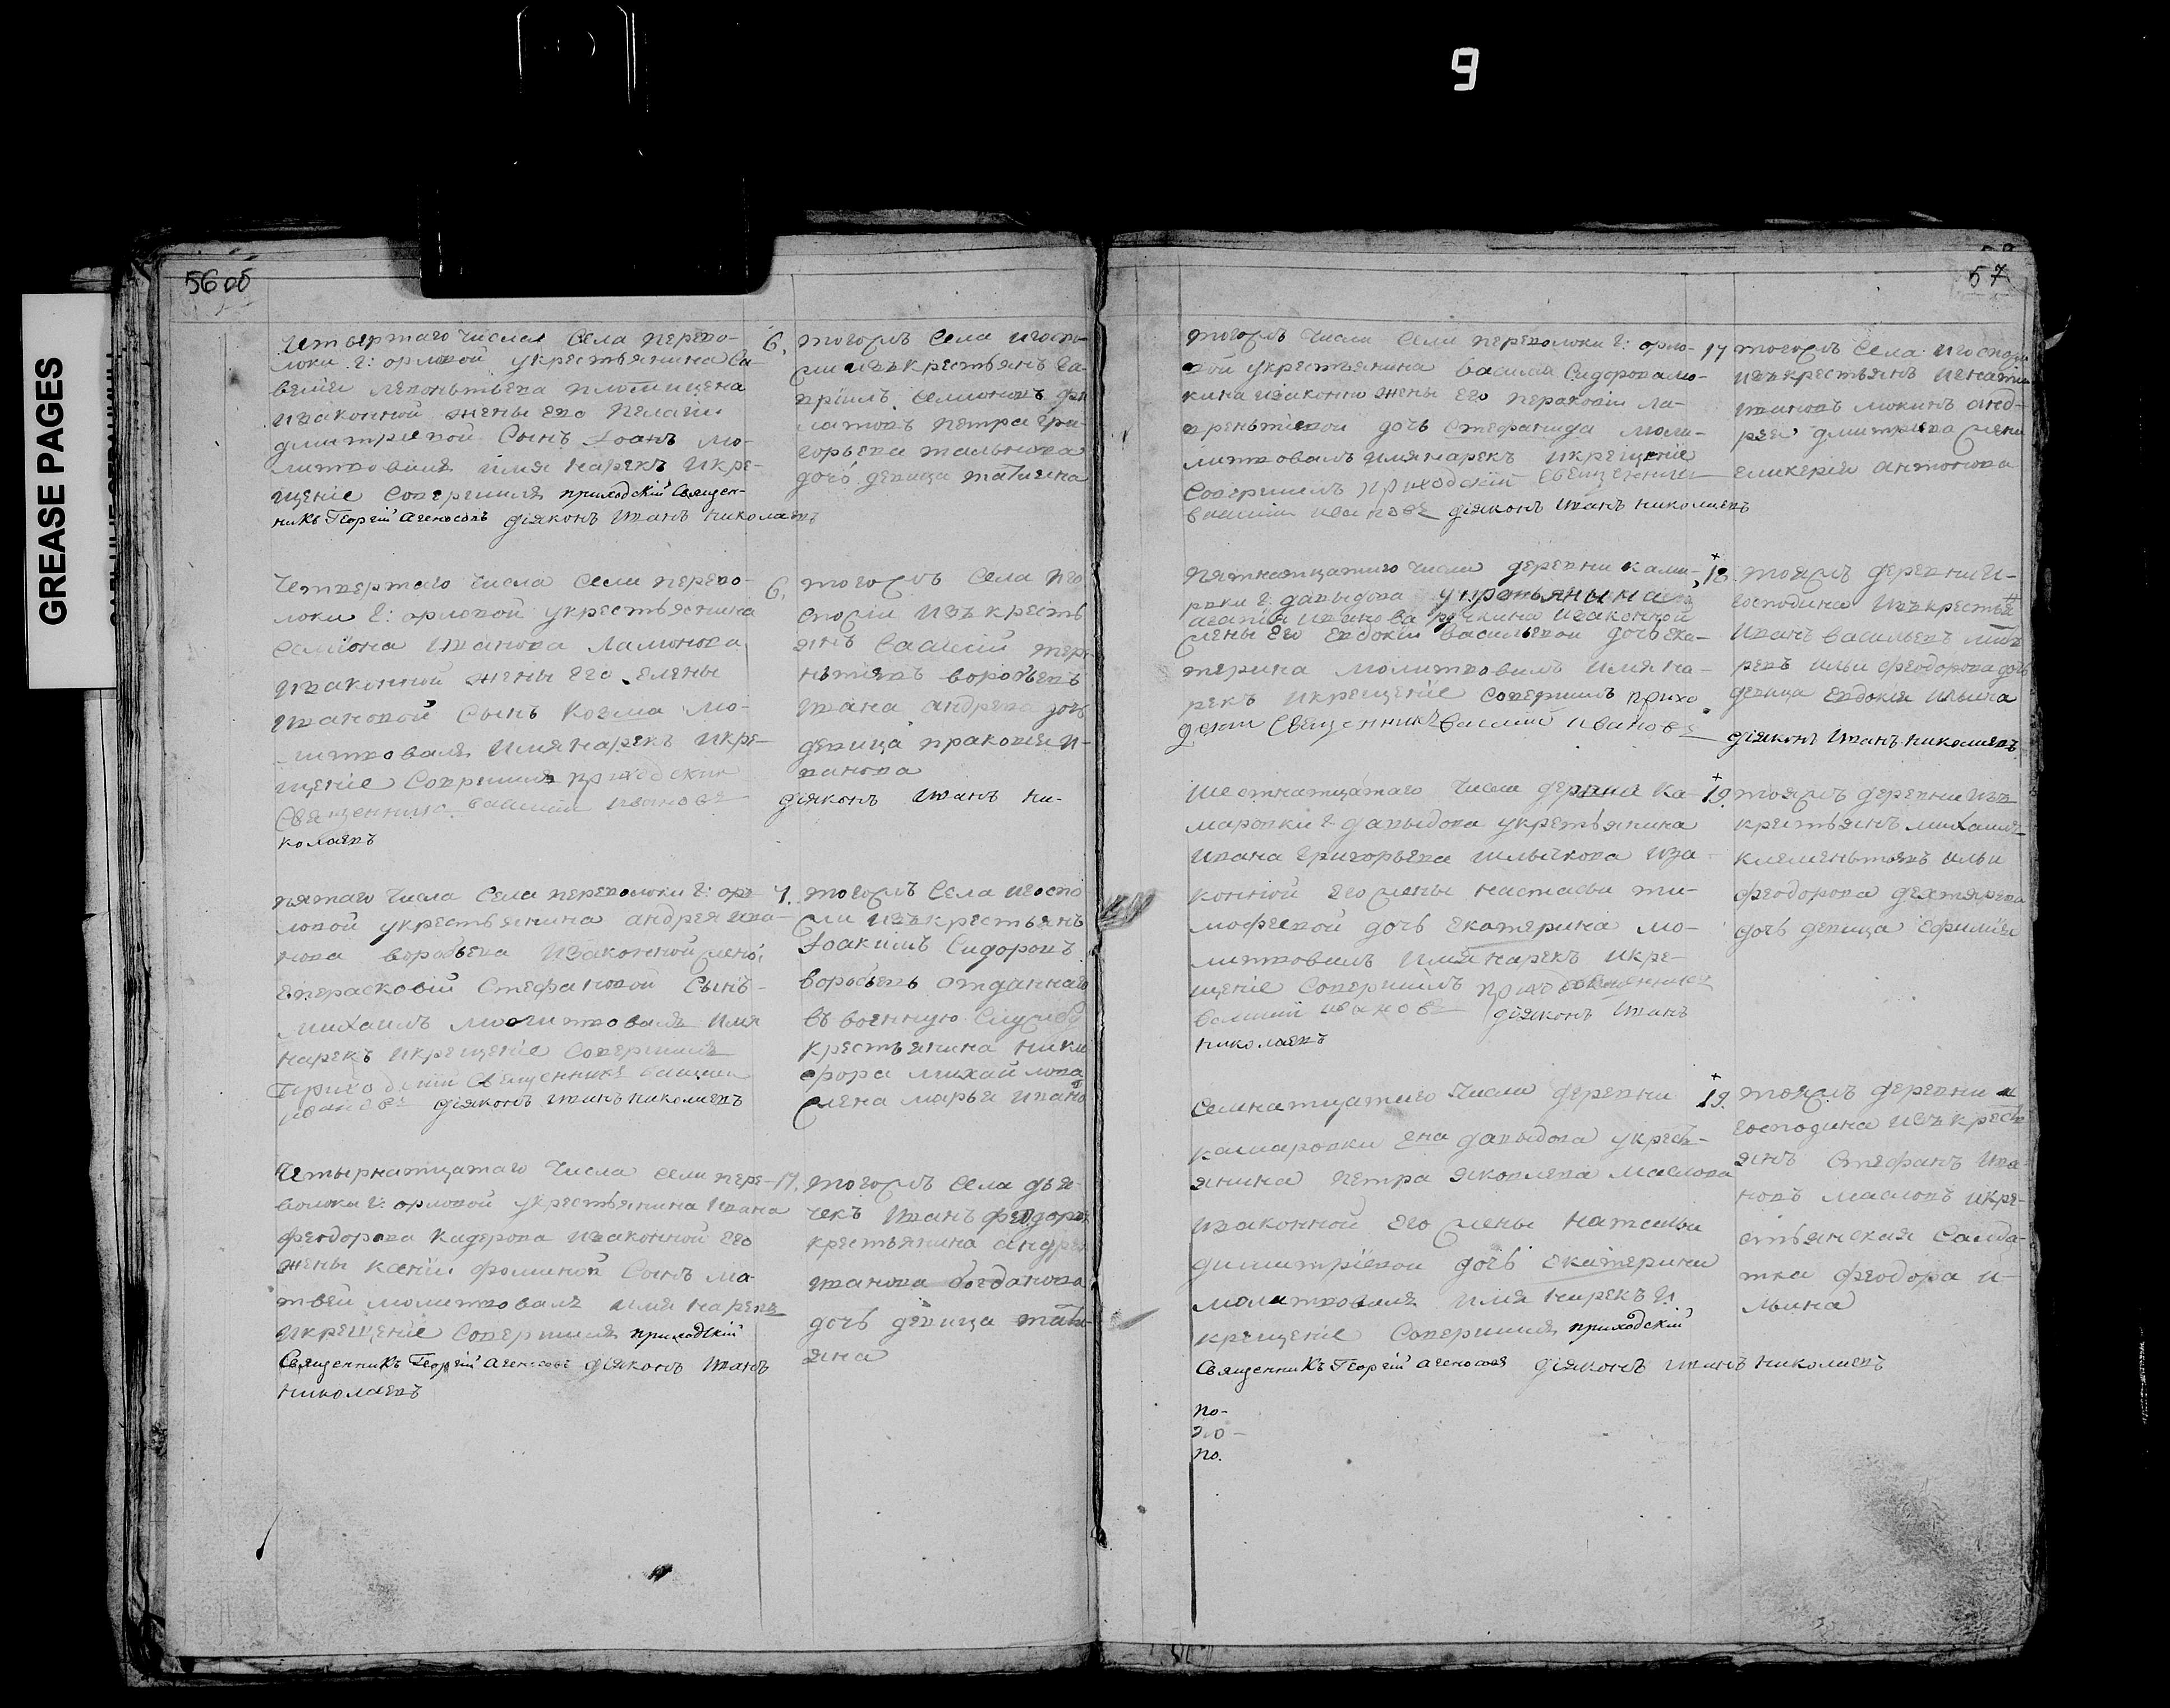 9
GREASE PAGES
56 об
Четвертаго числа села перево-
локи г: орловой укрестьянина Са-
велия леонтьева плотицена
изаконной жены его Пелагии
дмитриевой Сынъ Іоанъ мо-
литвовалъ имя нарекъ икре-
щеніе Совершилъ приходскій Священ-
никъ Георгій Агеносовъ діяконъ Иванъ николаевъ
6.
тогожъ Села игоспо-
жи изъкрестьянъ Га-
вріилъ Семионовъ фи
латовъ петра гри-
горьева
дочь девица татияна
Четвертаго числа Села перево-
локи г: орловой укрестьянина
Семіона иванова Ламонова
изаконной жены его елены
ивановой Сынъ Козма мо-
литвовалъ имя нарекъ икре-
щеніе Совершилъ приходский
Священникъ василий ивановъ
6.
тогожъ Села иго
спожи изъкресть
янъ Василій
воробьевъ
ивана андреева дочь
девица праковия и-
ванова
діяконъ иванъ ни-
колаевъ
пятаго числа Села переволоки г: ор-
ловой укрестьянина андрея ива-
нова воробьева изаконной жены
епарасковій Стефановой Сынъ
михаилъ молитвовалъ имя
нарекъ икрещеніе Совершилъ
Приходский Священникъ василий
ивановъ діяконъ иванъ николаевъ
7.
тогожъ Села игоспо
жи изъкрестьянъ
Іоакимъ Сидоровъ
воробьевъ отданнаго
въ военную Службу
крестьянина ники
фора михайлова
жена марья ивано
Четырнатцатаго числа села пере-
волоки г: орловой укрестьянина ивана
феодорова кидерова изаконной его
жены ксеніи фоминой Сынъ ма-
твей молитвовалъ имя нарекъ
икрещеніе Совершилъ приходскій
Священникъ Георгій Агеносовъ діяконъ иванъ
николаевъ
17.
тогожъ села дья-
чекъ Иванъ феодоровъ
крестьянина андрея
иванова богданова
дочь девица тати-
яна
57
тогожъ числа села переволоки г: орло-
вой укрестьянина василия Сидорова мо-
кина изаконно жены его парасковіи ла-
врентіевой дочь Стефанида моли-
твовалъ имя нарекъ икрещеніе
Совершилъ приходский Священникъ
василий ивановъ діяконъ иванъ николаевъ
17
тогожъ Села игоспожи
изъкрестьянъ игнатий
ивановъ мокинъ анд-
рея дмитриева жена
гликерия антонова
пятнатцатаго числа деревни кама-
ровки г: давыдова укретьянина
агапия иванова изаконной
жены его евдокіи васильевой дочь ека-
терина молитвовалъ имя на-
рекъ икрещеніе Совершилъ прихо
дский Священникъ василий ивановъ
18.
тояжъ деревни и-
господина изъкрестья
иванъ васильевъ
ильи феодорова дочь
девица евдокия ильина
діяконъ иванъ николаевъ
шестнатцатаго числа деревни ка-
маровки г давыдова укретьянина
ивана григорьева иза-
конной его жены настасьи ти-
мофеевой дочь екатерина мо-
литвовалъ имя нарекъ икре-
щеніе Совершилъ приход священникъ
василий ивановъ діяконъ иванъ
николаевъ
19.
тояжъ деревни изъ
крестьянъ михаилъ
клементьевъ ильи
феодорова дехтярева
дочь девица ефимия
Семнатцатаго числа деревни
камаровки гна давыдова укресть-
янина петра яковлева маслова
изаконной его жены натальи
димитріевой дочь екатерина
молитвовалъ имя нарекъ и
крещеніе Совершилъ приходскій
Священникъ Георгій Агеносовъ діяконъ иванъ николаевъ
19.
тояжъ деревни и
господина изъкресть
янъ Стефанъ ива-
новъ масловъ икре-
стьянская Салда-
тка феодора и-
льина
по-
по.